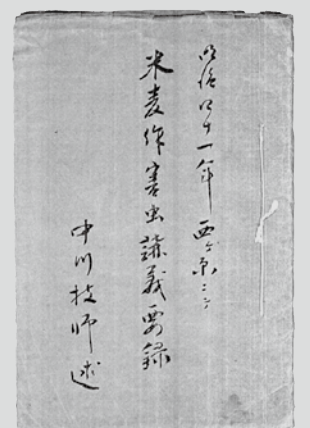 明治四十一年 西ヶ原ニテ
米麦作害虫講義要録
中川技師述